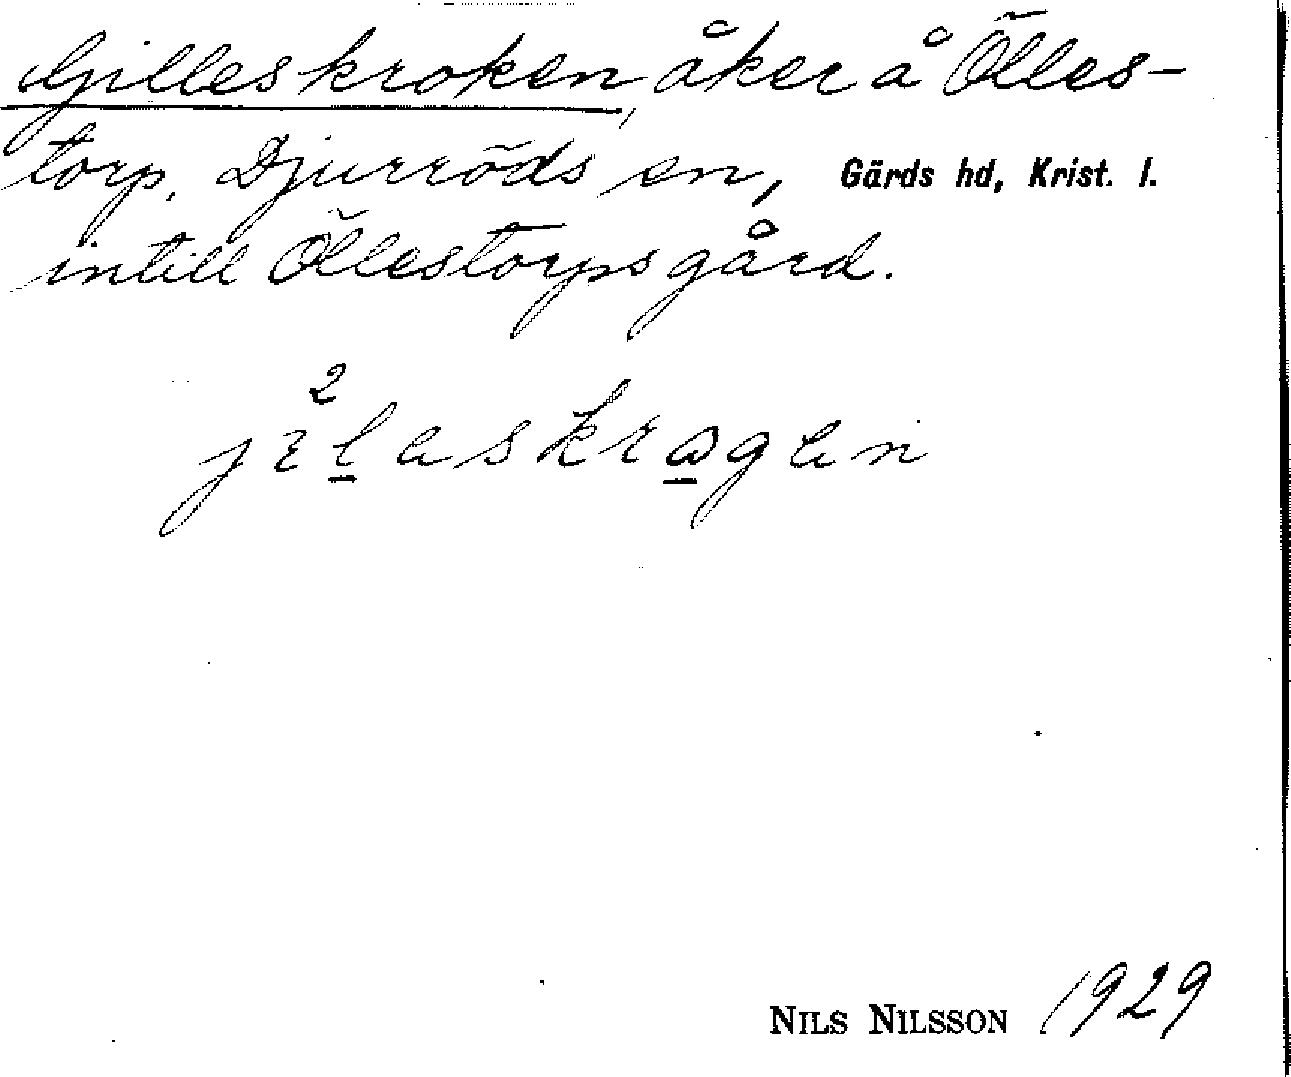 Gilleskroken, åker å Ölles-
torp, Djurröds sn, Gärds hd, Krist. l.
intill Öllestorpsgård.
NILS NILSSON 1929